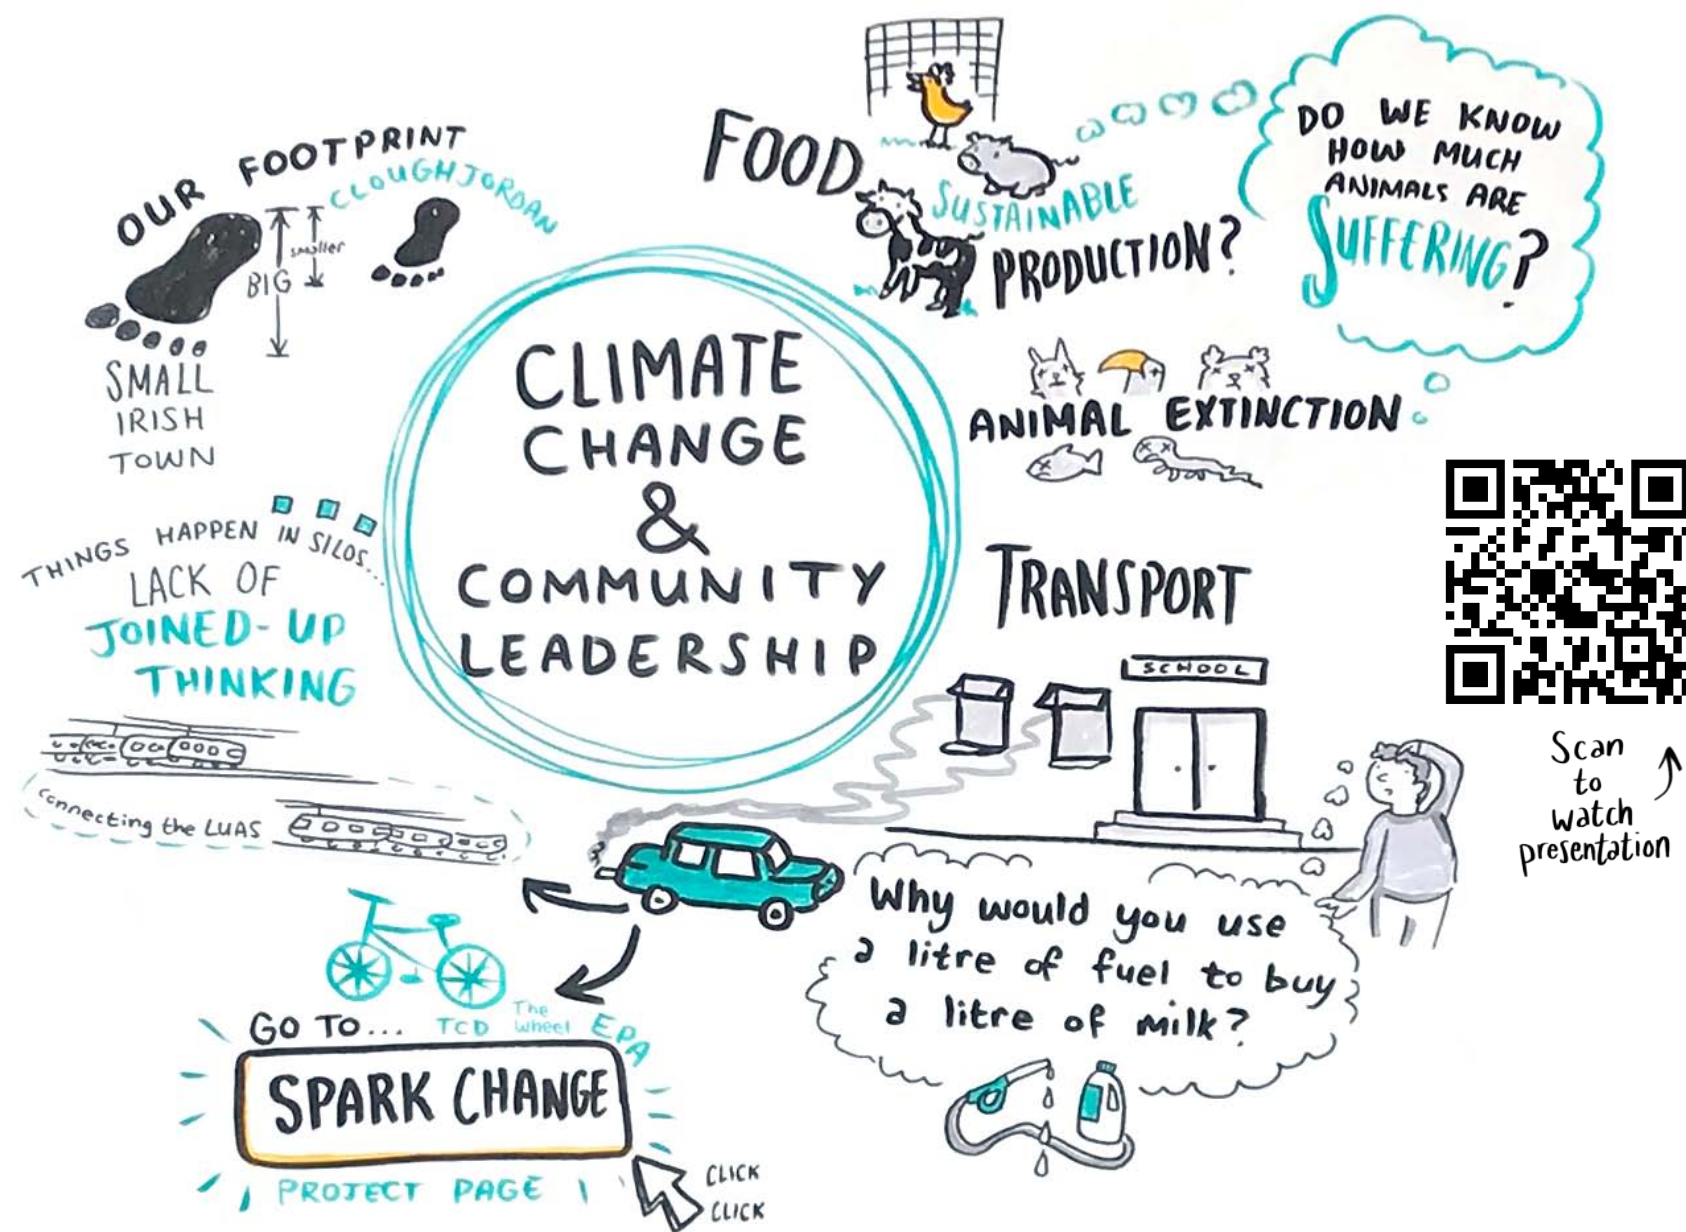 OUR FOOTPRINT
CLOUGHJORDAN
BIG
smaller
SMALL
IRISH
TOWN
FOOD
SUSTAINABLE
PRODUCTION?
DO WE KNOW
HOW MUCH
ANIMALS ARE
SUFFERING?
ANIMAL EXTINCTION
CLIMATE
CHANGE
&
COMMUNITY
LEADERSHIP
THINGS HAPPEN IN SILOS...
LACK OF
JOINED-UP
THINKING
connecting the LUAS
TRANSPORT
SCHOOL
Scan
to
watch
presentation
Why would you use
a litre of fuel to buy
a litre of milk?
GO TO... TCD The Wheel EPA
SPARK CHANGE
PROJECT PAGE
CLICK
CLICK